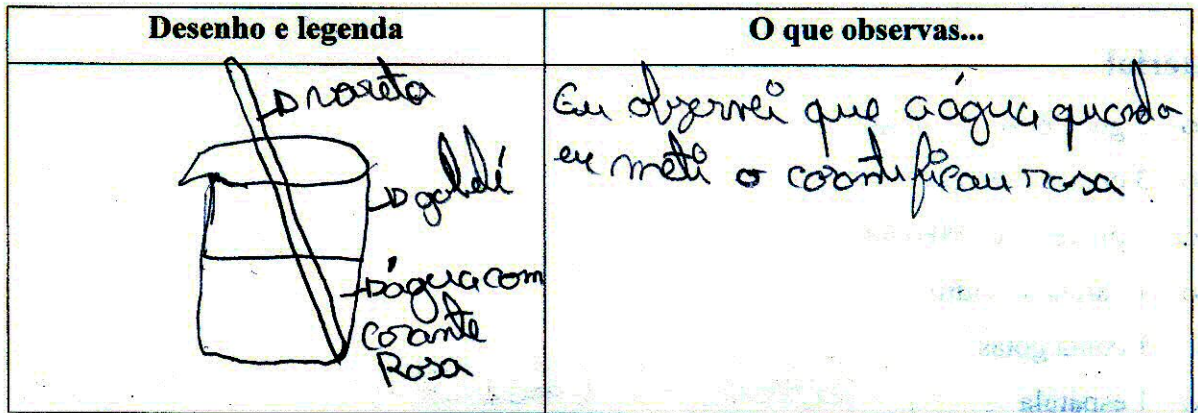 Desenho e legenda
O que observas...
vareta
gobelé
água com
corante
Rosa
Eu obzervei que a água quando
eu meti o corante ficou rosa
conta gotas
1 espatula